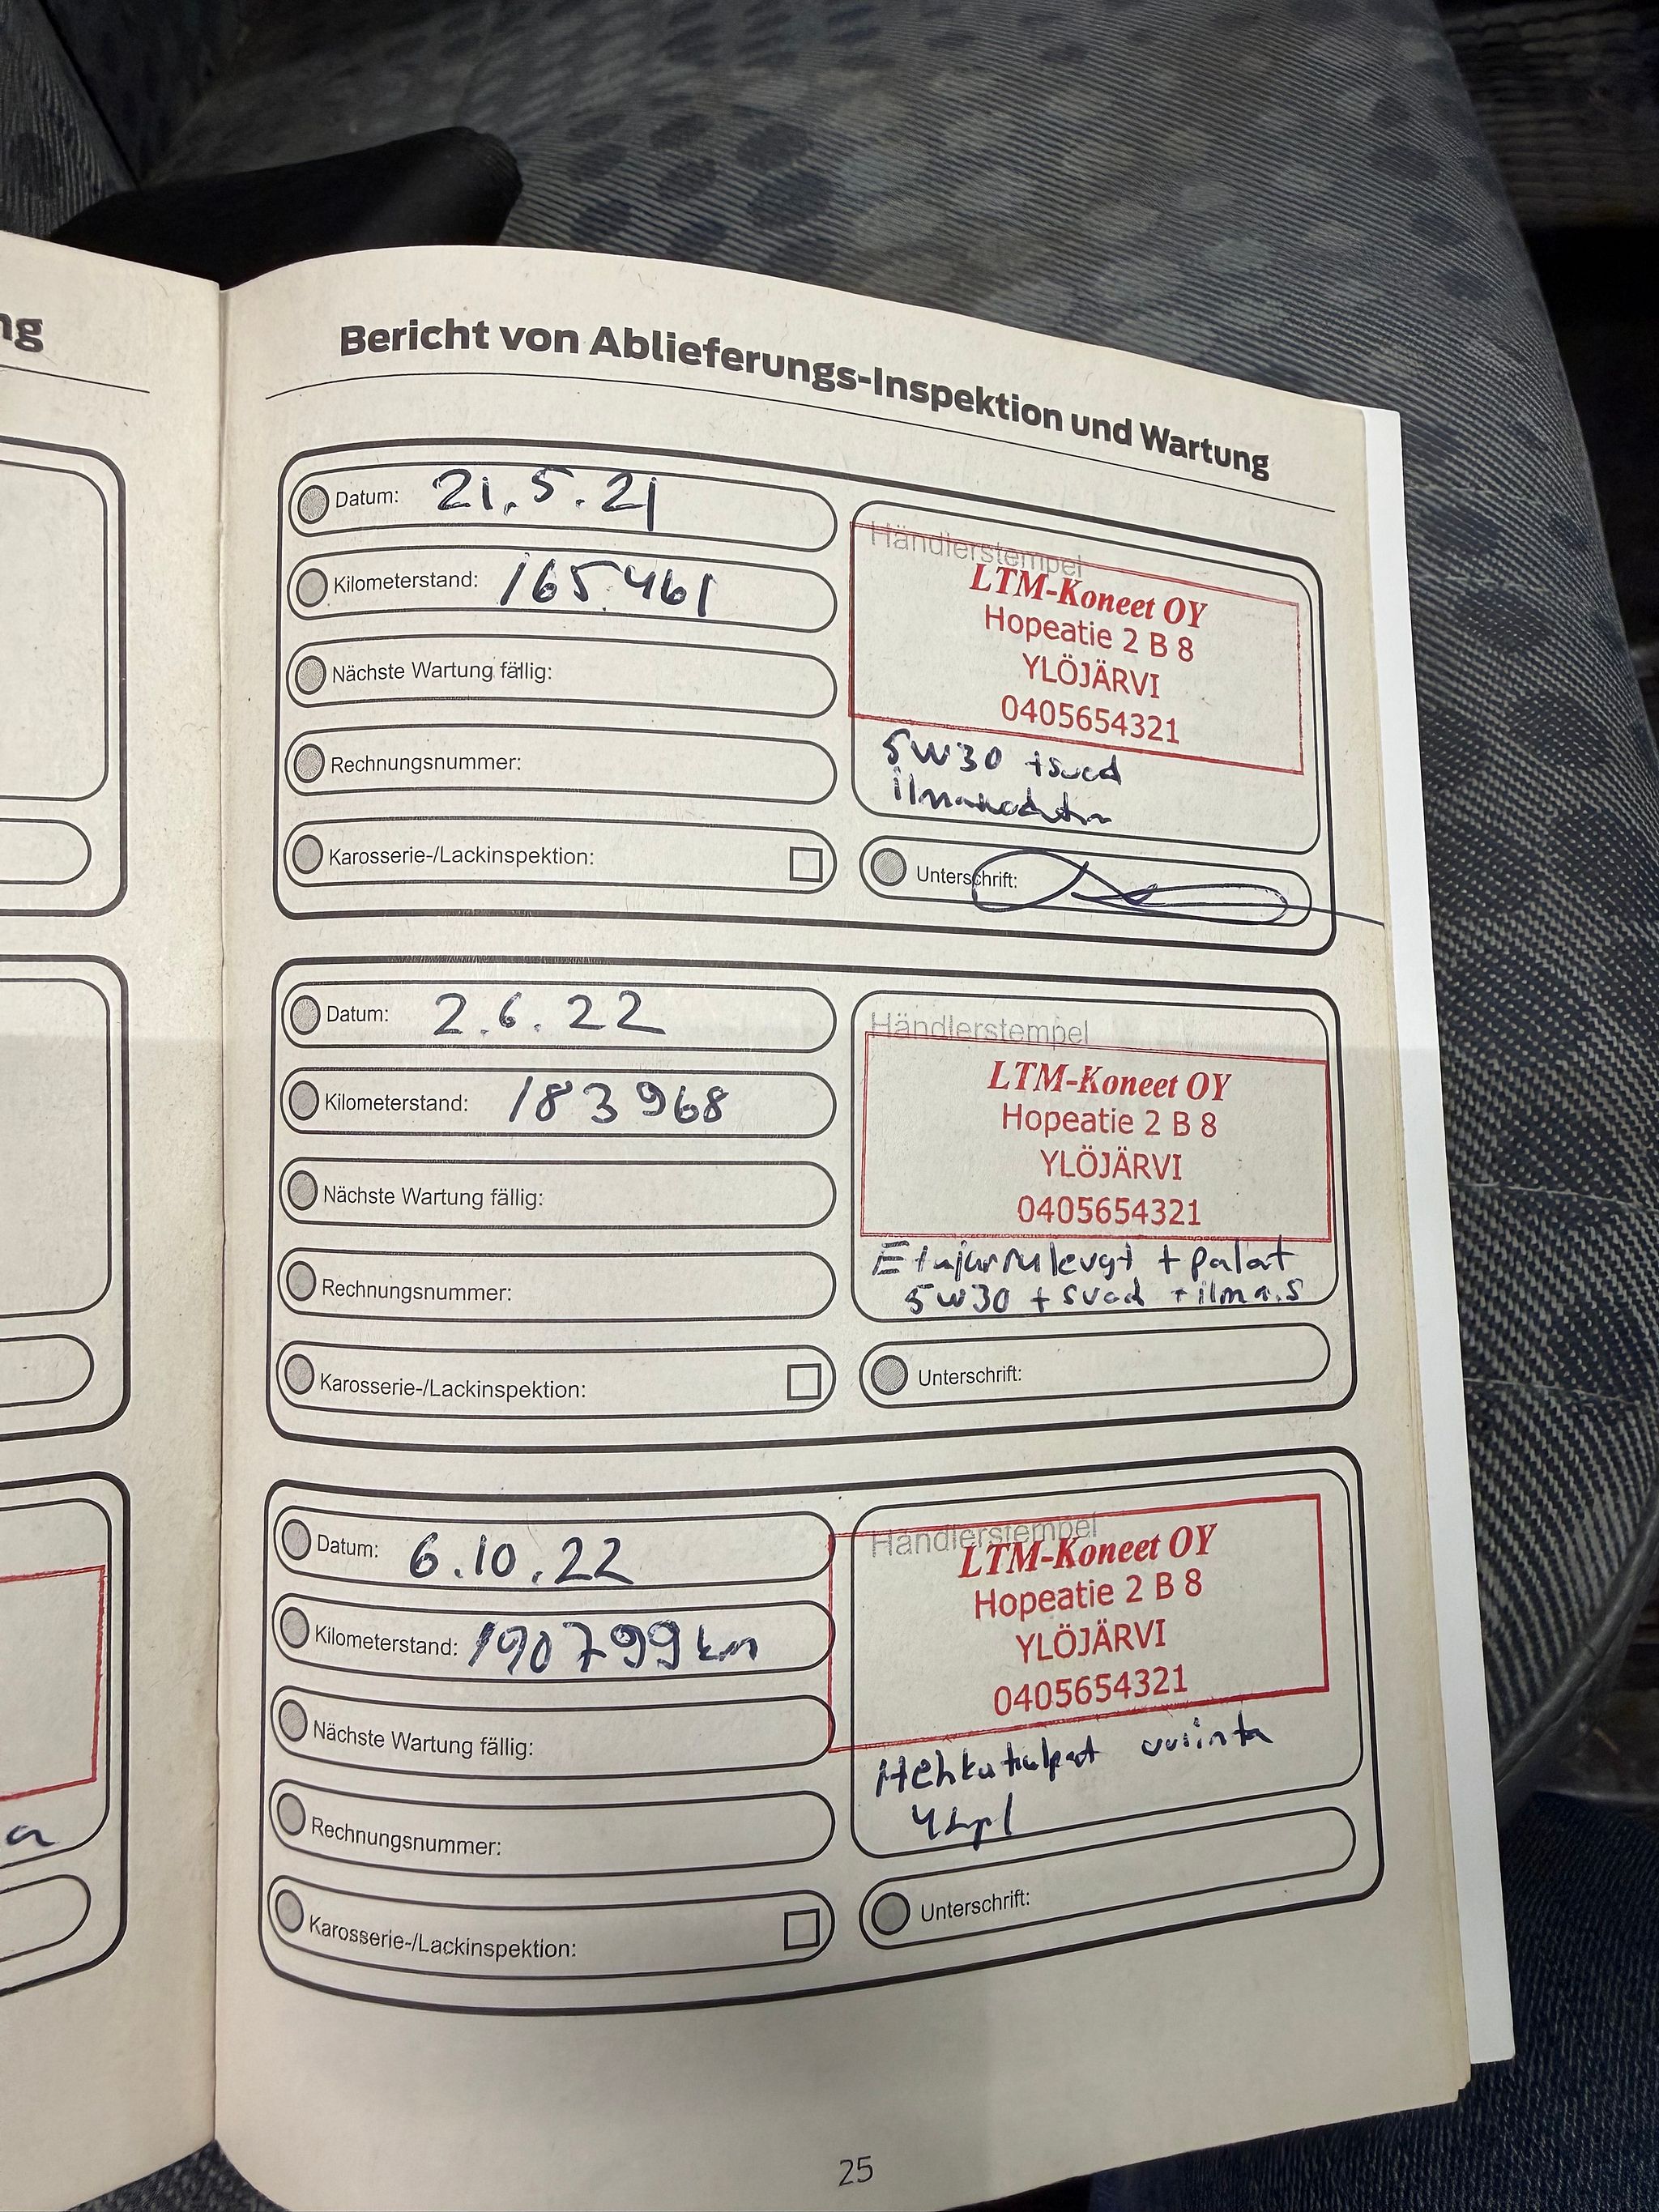 ng
Bericht von Ablieferungs-Inspektion und Wartung
Datum: 21.5.21
Kilometerstand: 165.461
Nächste Wartung fällig:
Rechnungsnummer:
Karosserie-/Lackinspektion:
Händlerstempel
LTM-Koneet OY
Hopeatie 2 B 8
YLÖJÄRVI
0405654321
5W30 + suod
Unterschrift:
Datum: 2.6.22
Kilometerstand: 183968
Nächste Wartung fällig:
Rechnungsnummer:
Karosserie-/Lackinspektion:
Händlerstempel
LTM-Koneet OY
Hopeatie 2 B 8
YLÖJÄRVI
0405654321
Etujarrulevyt + palat
5W30 + suod + ilma.s
Unterschrift:
Datum: 6.10.22
Kilometerstand: 190799 km
Nächste Wartung fällig:
Rechnungsnummer:
Karosserie-/Lackinspektion:
Händlerstempel
LTM-Koneet OY
Hopeatie 2 B 8
YLÖJÄRVI
0405654321
Hehkutulpat
4kpl
Unterschrift:
a
25